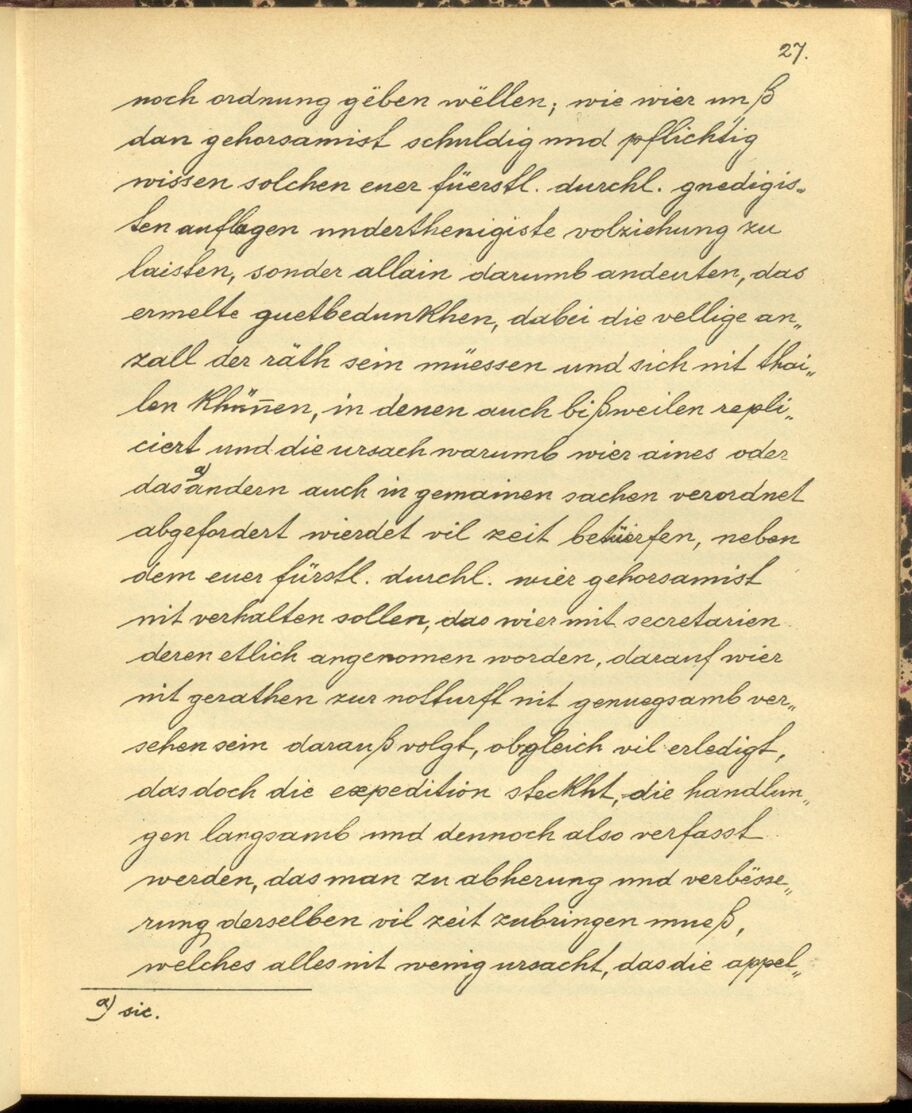 27.
noch ordnung gëben wëllen; wie wier unß
dan gehorsamist schuldig und pflichtig
wissen solchen euer füerstl. durchl. gnedigis„
ten auflagen underthenigiste volziehung zu
laisten, sonder allain darumb andeuten, das
ermelte guetbedunkhen, dabei die vellige an„
zall der räth sein müessen und sich nit thai„
len khünen, in denen auch bißweilen repli„
ciert und die ursach warumb wier aines oder
das a) andern auch in gemainen sachen verordnet
abgefordert wierdet vil zeit betüerfen, neben
dem euer fürstl. durchl. wier gehorsamist
nit verhalten sollen, das wier mit secretarien
deren etlich angenomen worden, darauf wier
nit gerathen zur notturft nit genuegsamb ver„
sehen sein darauß volgt, obgleich vil erledigt,
das doch die expedition steckht, die handlun„
gen langsamb und dennoch also verfasst
werden, das man zu abherung und verbësse„
rung derselben vil zeit zubringen mueß,
welches alles nit wenig ursacht, das die appel„
a) sic.